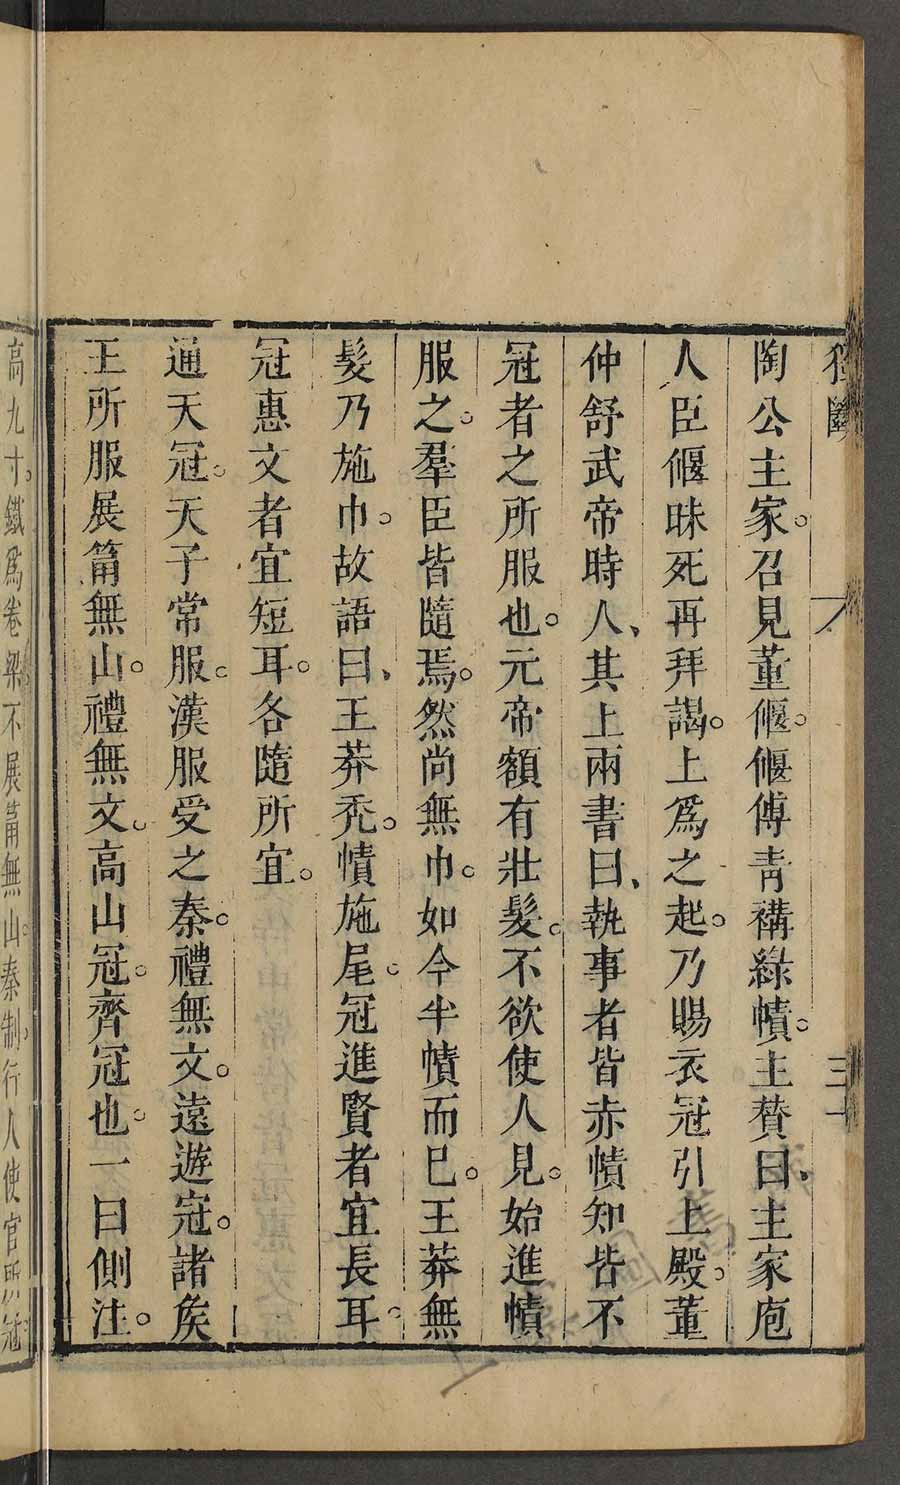 獨斷
三十
陶公主家。召見董偃。偃傅青褠綠幘。主贊曰、主家庖
人臣偃昧死再拜謁。上爲之起。乃賜衣冠引上殿。董
仲舒武帝時人、其上兩書曰、執事者皆赤幘知皆不
冠者之所服也。元帝額有壯髮。不欲使人見。始進幘
服之。羣臣皆隨焉。然尚無巾。如今半幘而巳。王莽無
髮乃施巾。故語曰、王莽禿。幘施尾。冠進賢者宜長耳。
冠惠文者宜短耳。各隨所宜。
通天冠。天子常服。漢服受之秦。禮無文。遠遊冠。諸矦
王所服展筩無山。禮無文。高山冠。齊冠也。一曰側注。
高九寸。鐵爲卷梁不展筩無山。秦制。行人使官所冠